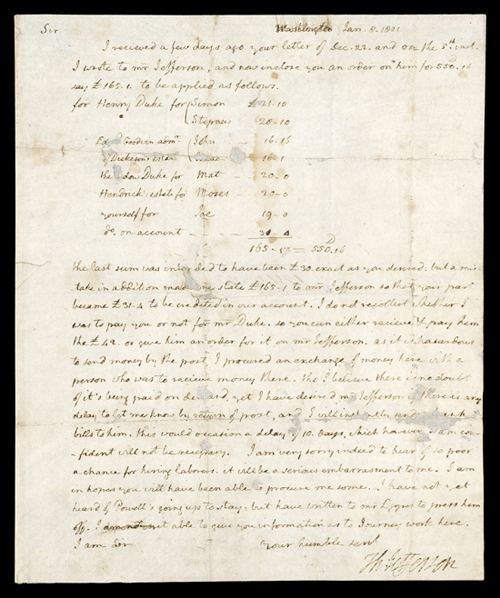 Sir Washington Jan. 8. 1801
I recieved a few days ago your letter of Dec. 22. and on the 5th inst.
I wrote to mr Jefferson, and now inclose you an order on him for 550D.16
say £165.1. to be applied as follows.
for Henry Duke for Simon £21-10
Stephens 20-10
John - 16-15
Isaac - 16-1
the Duke for Mat - 20-0
Hendrick's estate for Moses - 20-0
yourself for Joe 19-0
do. on account - 31.4
165-17 = 550D.16
the last sum was intended to have been £30. exact as you desired, but a mis-
take in addition made me state £165.1 to mr Jefferson so that your part
became £31.4 to be credited in our account. I do not recollect whether I
was to pay you or not for mr Duke, so you can either recieve & pay them
the £42. or give him an order for it on mr Jefferson. as it is hazardous
to send money by the post I procured an exchange of money here with a
person who was to recieve money there. tho' I believe there is no doubt
of it's being paid on demand, yet I have desired mr Jefferson if there is any
delay to let me know by return of post, and I will instantly send bank
bills to him. this would occasion a delay of 10. days, which however I am con-
-fident will not be necessary. I am very sorry indeed to hear of so poor
a chance for hiring laborers. it will be a serious embarrasment to me. I am
in hopes you will have been able to procure one some. I have not yet
heard of Powell's going up to stay: but have written to mr Eppes to press him
off. I am not yet able to give you information as to Journey work here.
I am Sir your humble servt
Th: Jefferson